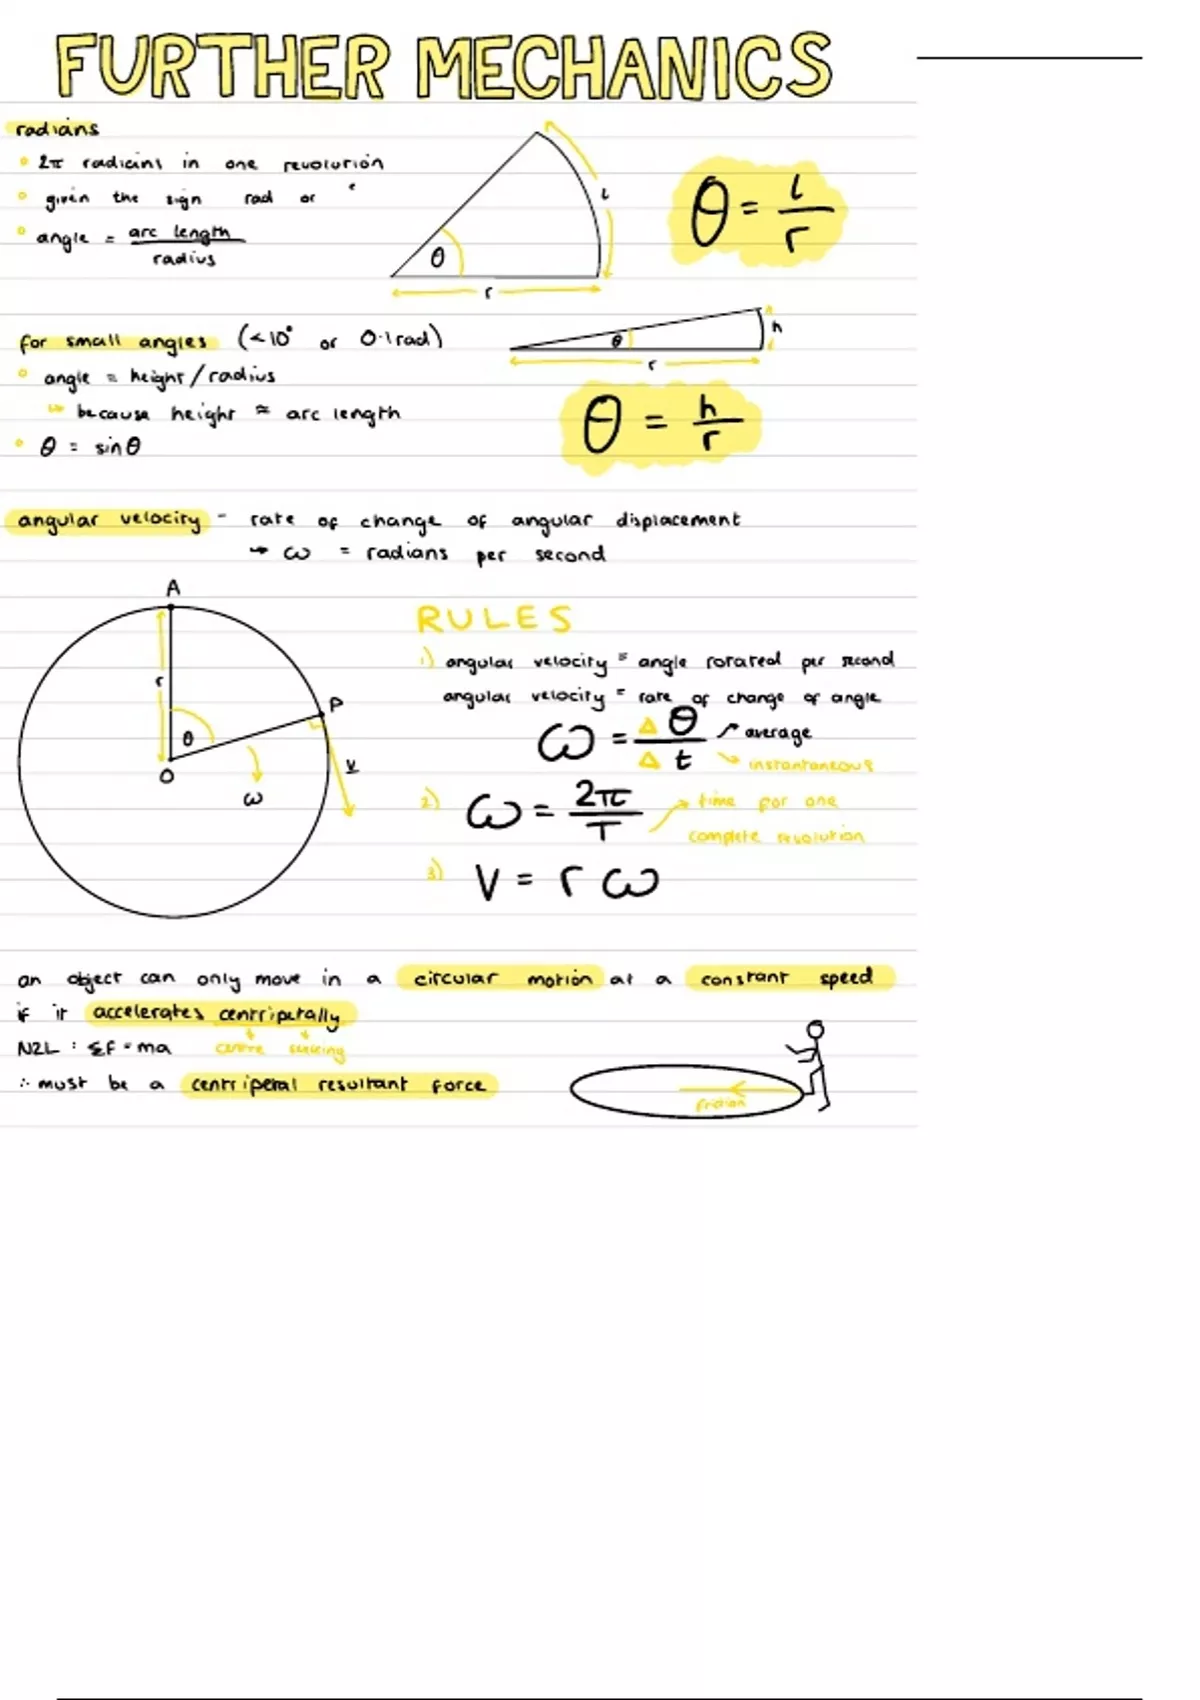 FURTHER MECHANICS
radians
2π radians in one revolution
given the sign rad or ᶜ
angle = arc length / radius
θ
r
l
θ = l / r
for small angles (<10° or 0.1rad)
angle = height/radius
↳ because height ≈ arc length
θ = sinθ
θ
r
h
θ = h / r
angular velocity - rate of change of angular displacement
→ ω = radians per second
A
r
θ
O
P
v
ω
RULES
1) angular velocity = angle rotated per second
angular velocity = rate of change of angle
ω = Δθ / Δt
average
instantaneous
2) ω = 2π / T
time for one
complete revolution
3) v = rω
an object can only move in a circular motion at a constant speed
if it accelerates centripetally
N2L : ΣF = ma centre seeking
∴ must be a centripetal resultant force
friction